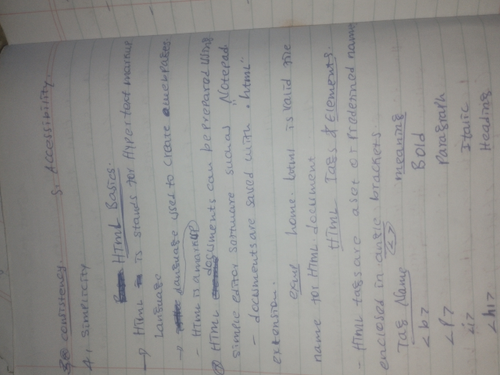 3. consistency. 5. Accessibility
4. Simplicity
HTML Basics.
→ HTML is stands for Hypertext markup
Language
→ Language used to create webpages
- HTML is a markup
documents can be prepared using
HTML
simple editor software such as "Notepad
- documents are saved with ".html"
extension.
home.html is valid file
name for HTML document
HTML Tags & Elements.
- HTML tags are a set of Predefined name
enclosed in angle brackets
< >
Tag Name meaning
<b> Bold
<p> Paragraph
<i> Italic
<h1> Heading